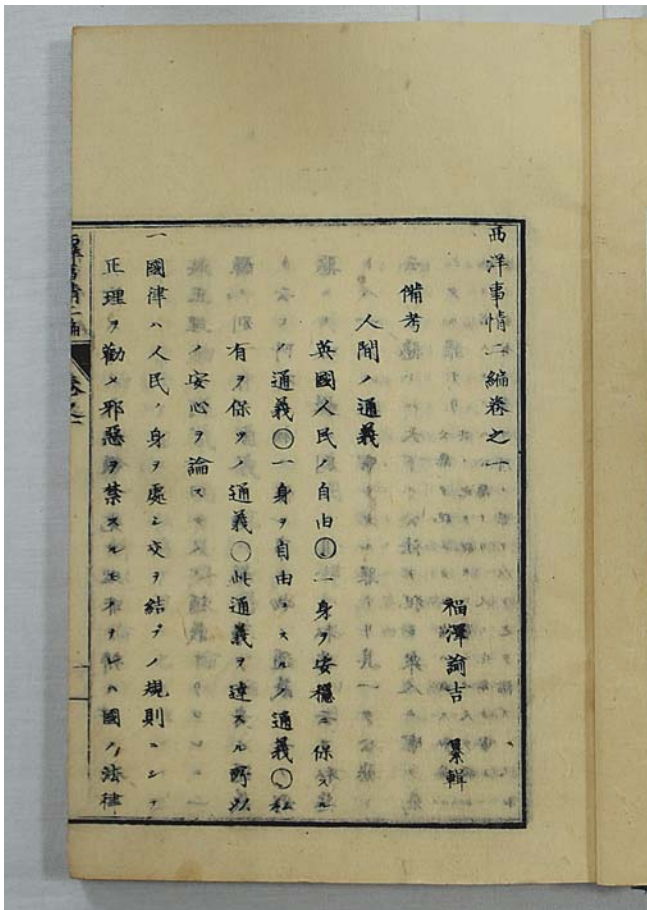 西洋事情二編卷之一
福澤諭吉 纂輯
備考
人間ノ通義
英國人民ノ自由○一身ヲ安穩ニ保スル
ノ通義○一身ヲ自由ニスルノ通義○私
有ヲ保ツノ通義○此通義ヲ達スル所以
ノ安心ヲ論ス
一國律ハ人民ノ身ヲ處シ交ヲ結ブノ規則ニシテ
正理ヲ勸メ邪惡ヲ禁スルモノナレハ國ノ法律
卷之一